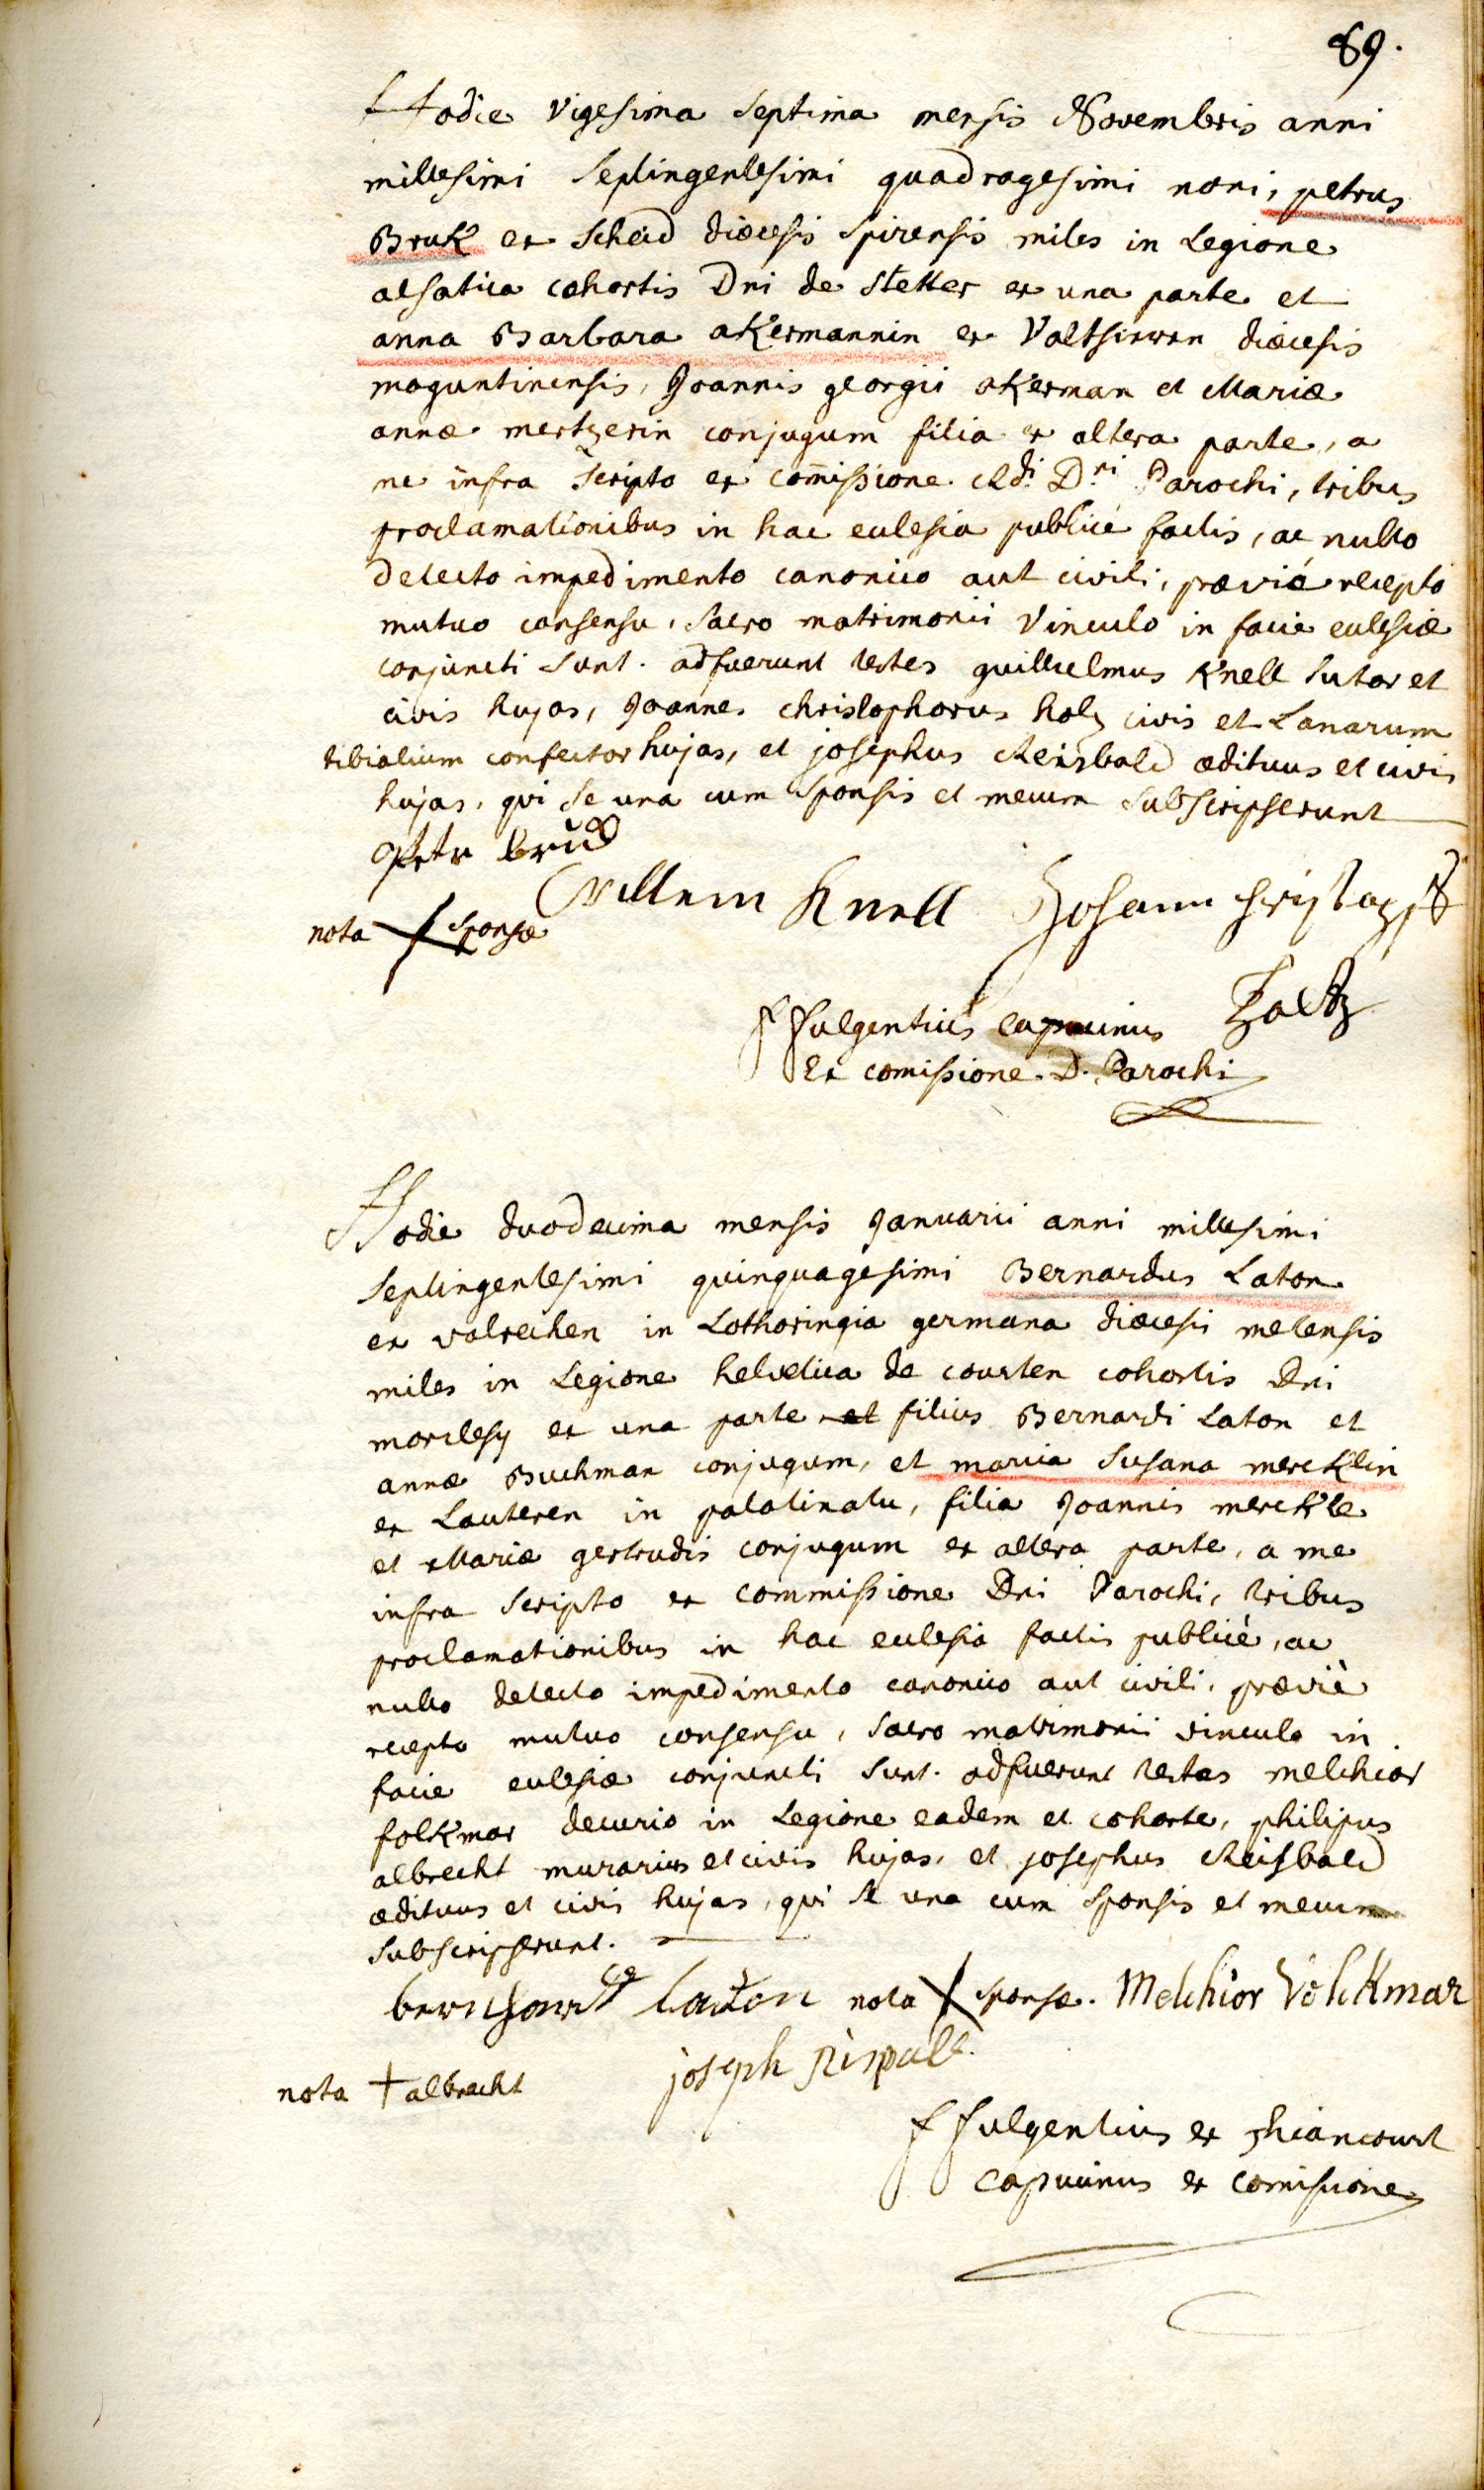 89.
Hodie vigesima septima mensis Novembris anni
millesimi septingentesimi quadragesimi noni, petrus
Bruk ex Scheid diœcesis spirensis miles in Legione
alsatica cohortis Dni de Stetter ex una parte et
anna Barbara aKermannin ex diœcesis
moguntinensis, Joannis georgii aKerman et Mariæ
annæ mertzerin conjugum filia ex altera parte, a
me infra scripto ex com̄issione Rdi Dni Parochi, tribus
proclamationibus in hac ecclesia publicé factis, ac nullo
detecto impedimento canonico aut civili, præviè recepto
mutuo consensu, sacro matrimonii vinculo in facie ecclesiæ
conjuncti sunt. adfuerunt testes guillielmus Knell sutor et
civis hujas, Joannes christophorus holtz civis et Lanarum
tibialium confector hujas, et josephus Reisbald ædituus et civis
hujas, qui se una cum sponsis et mecum subscripserunt
Petr bruck
Willem Knell Johann
nota sponsæ
Holtz
f fulgentius capucinus
Ex comissione D. Parochi
Hodie duodecima mensis Januarii anni millesimi
septingentesimi quinquagesimi Bernardus Laton
ex valrechen in Lotharingia germana diœcesis metensis
miles in Legione helvetica de courten cohortis Dni
morclesy ex una parte et filius Bernardi Laton et
annæ Buchman conjugum, et maria susana mercKlin
ex Lauteren in palatinatu, filia Joannis mercKle
et Mariæ gertrudis conjugum ex altera parte, a me
infra scripto ex commissione Dni Parochi, tribus
proclamationibus in hac ecclesia factis publicè, ac
nullo detecto impedimento canonico aut civili, præviè
recepto mutuo consensu, sacro matrimonii vinculo in
facie ecclesiæ conjuncti sunt. adfuerunt testes melchior
folKmar decurio in Legione eadem et cohorte, philipus
albrecht murarius et civis hujas, et josephus Reisbald
ædituus et civis hujas, qui se una cum sponsis et mecum
subscripserunt.
bernhardt laton nota sponsæ. Melchior VolcKmar
joseph Rispall
nota + albrecht
f fulgentius ex
capucinus ex comissione